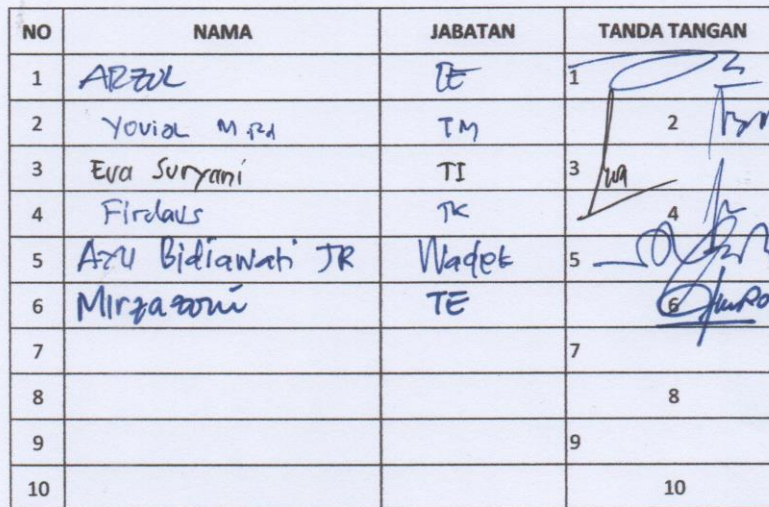 NO NAMA JABATAN TANDA TANGAN
1 ARZUL 1
2 Yovial M TM 2
3 Eva Suryani TI 3
4 Firdaus TK 4
5 Ayu Bidiawati JR Wadek 5
6 Mirzazoni TE 6
7 7
8 8
9 9
10 10